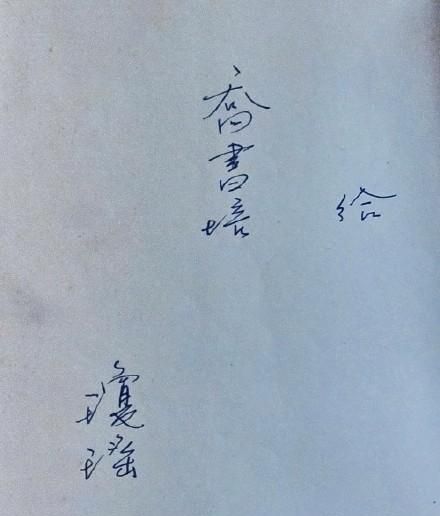 給
喬書培
瓊瑤